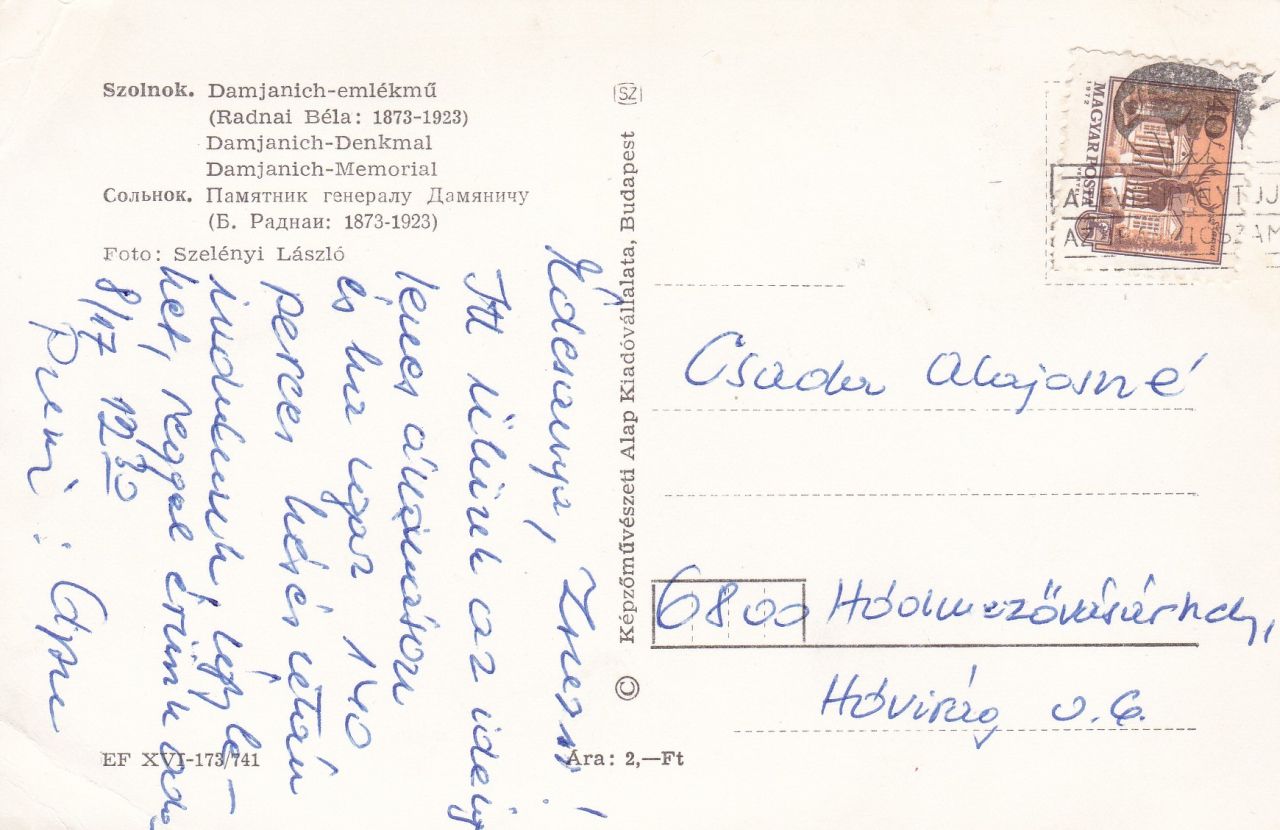 Szolnok. Damjanich-emlékmű
(Radnai Béla: 1873-1923)
Damjanich-Denkmal
Damjanich-Memorial
Сольнок. Памятник генералу Дамяничу
(Б. Раднаи: 1873-1923)
Foto: Szelényi László
Édesanya,
Itt ülünk az ideig
lenes állomáson
és ha igaz 140
perces késés után
indulunk így le-
het, reggel érünk oda
8/17 12 30
Puszi:
EF XVI-173/741
Ára: 2,—Ft
© Képzőművészeti Alap Kiadóvállalata, Budapest
SZ
40 f
MAGYAR POSTA
1972
Csada Alajosné
6800 Hódmezővásárhely,
Hóvirág u. 6.